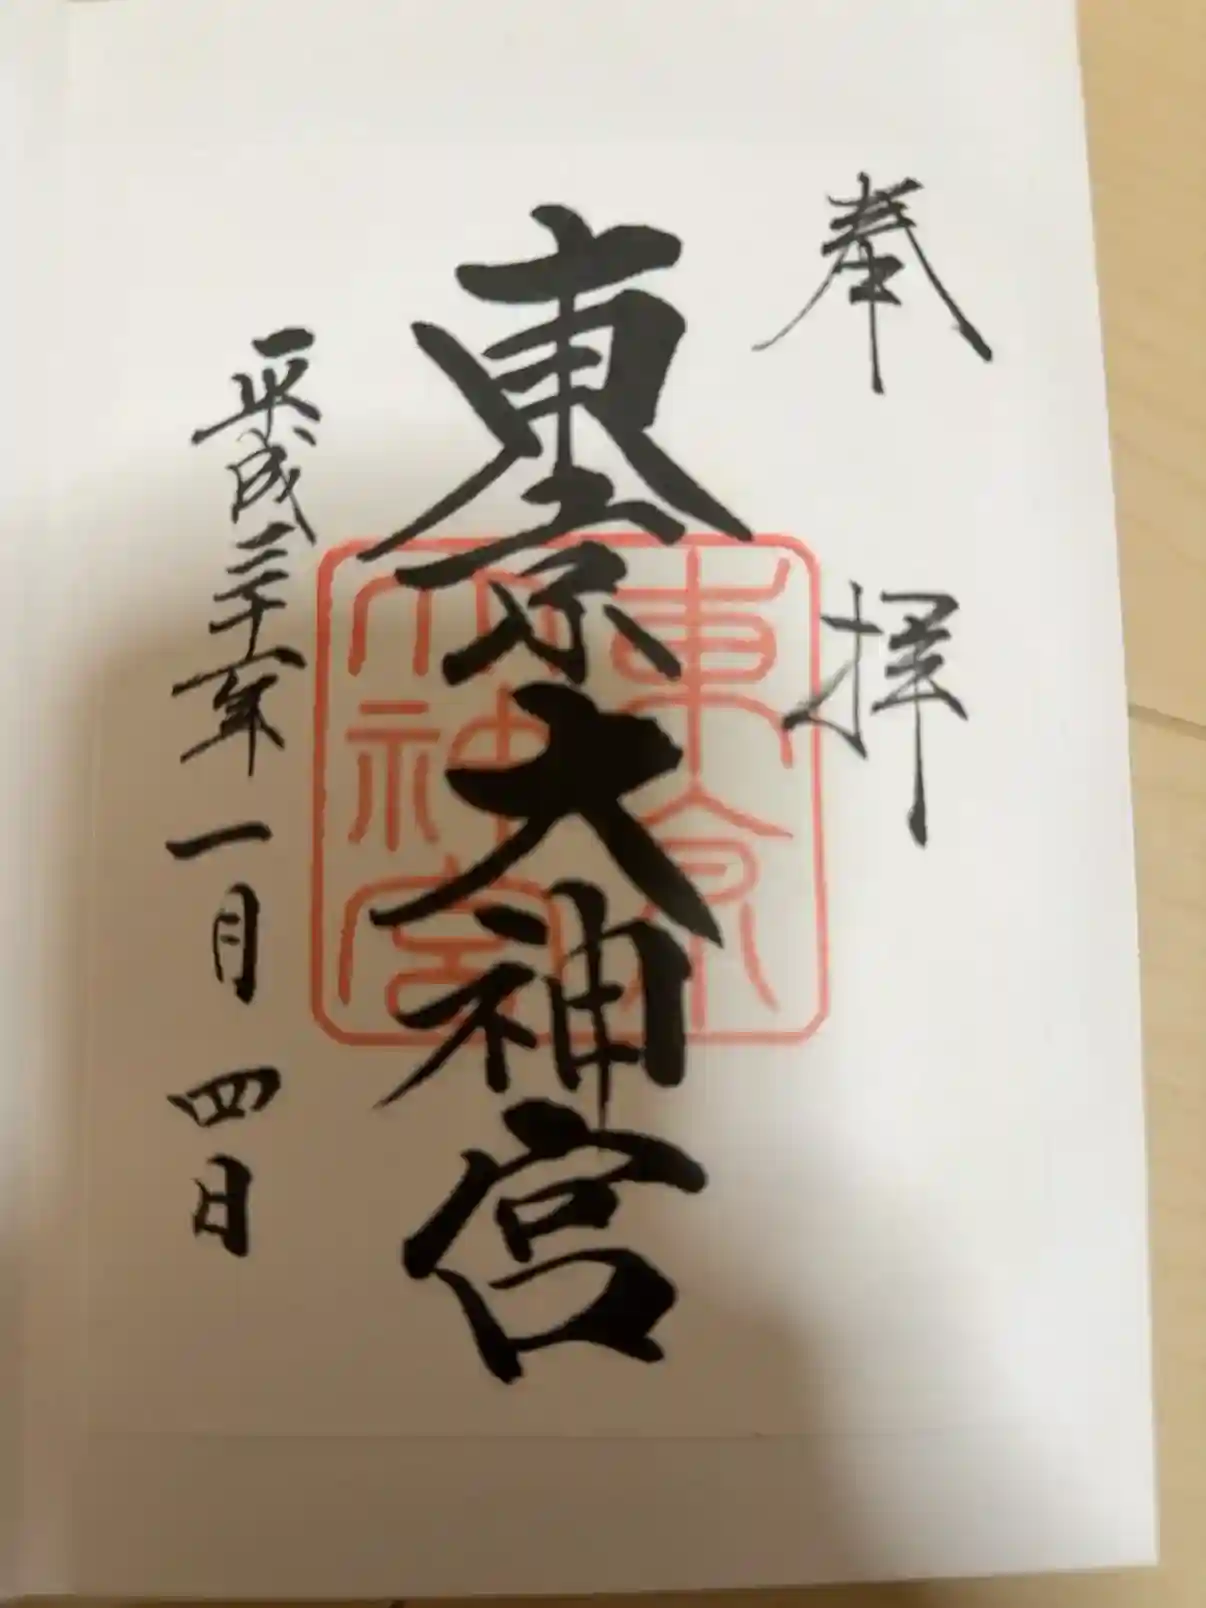 奉拝
東京大神宮
平成三十一年一月四日
東京
大神宮